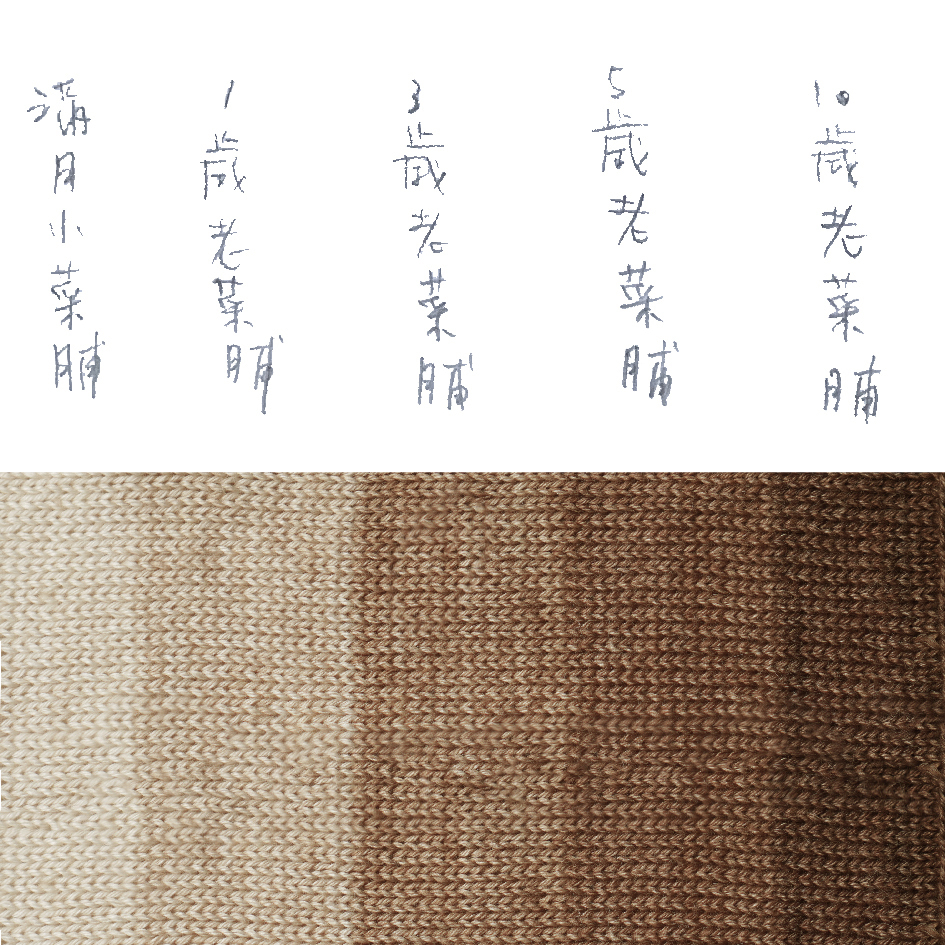 滿月小菜脯
1歲老菜脯
3歲老菜脯
5歲老菜脯
10歲老菜脯